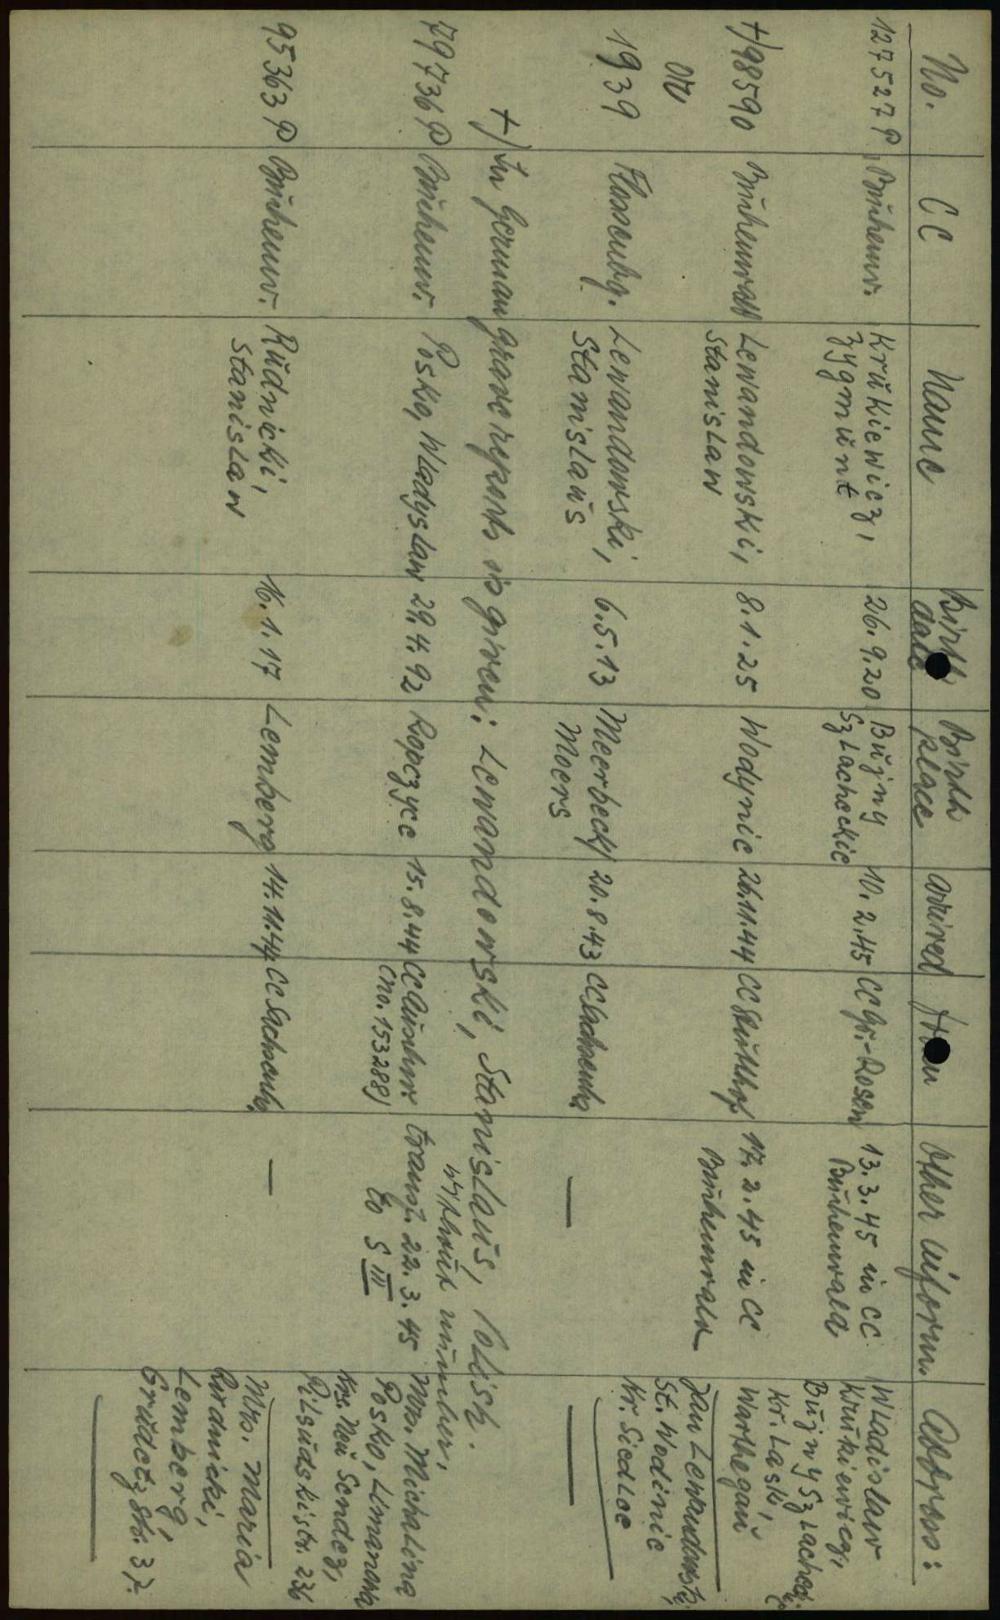 No. CC Name Birth date Birth place arrived from Other inform. Address:
127527 P Buchenw. Krukiewicz, 26.9.20 Bujny 10.2.45 CC Gr.-Rosen 13.3.45 in CC Wladislaw
Zygmunt Szlacheckie Buchenwald Krukiewicz,
Bujny Szlachec
Kr. Lask,
Warthegau
+/98590 Buchenwald Lewandowski, 8.1.25 Wodynie 26.11.44 CC Stutthof 17.2.45 in CC Jan Lewandowski,
Stanislaw Buchenwald St. Wodinie
or Kr. Siedlce
1939 Flossenbg. Lewandowski, 6.5.13 Meerbeck/ 20.8.43 CC Sachsenhs. — —
Stanislaus Moers
+/ In German grave reports is given: Lewandowski, Stanislaus, Polish.
without number,
79736 P Buchenw. Posko, Wladyslaw 29.4.92 Ropczyce 15.8.44 CC Auschw. transf. 22.3.45 Mrs. Michalina
(no. 153288) to S III Posko, Limanowa
Krs. Neu Sendez,
Pilsudskistr. 236
95363 P Buchenw. Rudnicki, 16.1.17 Lemberg 14.11.44 CC Sachsenhs. — Mrs. Maria
Stanislaw Rudnicki,
Lemberg,
Grudetzstr. 37.